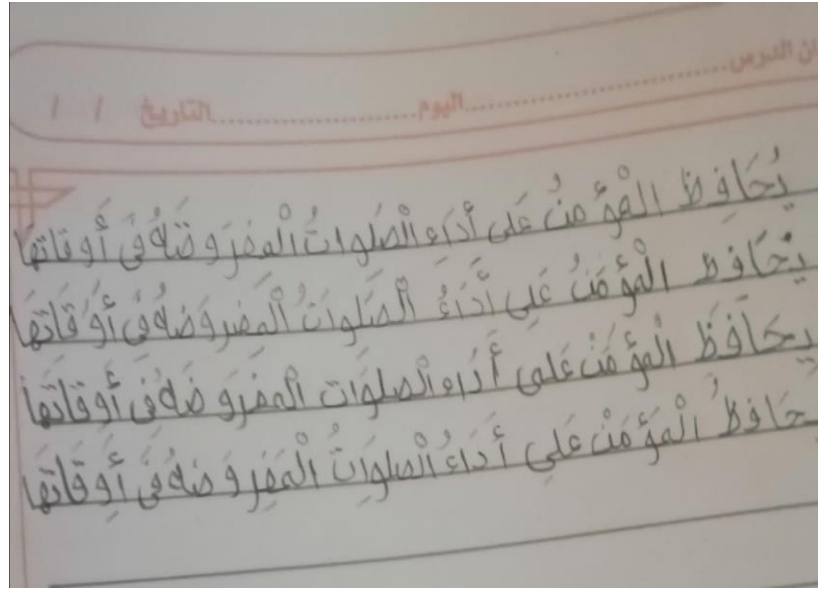 ان الدرس..................اليوم..................التاريخ / /
يُحَافِظُ الْمُؤْمِنُ عَلَى أَدَاءِ الْصَلَواتُ الْمَفْرَوضَةُ فَى أَوقاتِهَا
يُحَافِظ الْمُؤْمَنُ عَلَى أَدَاءُ الْصَلَواتُ الْمَفْروَضَةُ فَى أَوْقَاتِهَا
يحَافَظَ الْمُؤْمَنْ عَلَى أَدَاء الْصلوَات الْمَفْرَوضَةُ فَى أَوقَاتِهَا
يحَافظُ الْمُؤْمَنْ عَلى أَدَاءُ الْصلوَاتُ الْمَفْرَوضَةُ فَى أَوقَاتِهَا